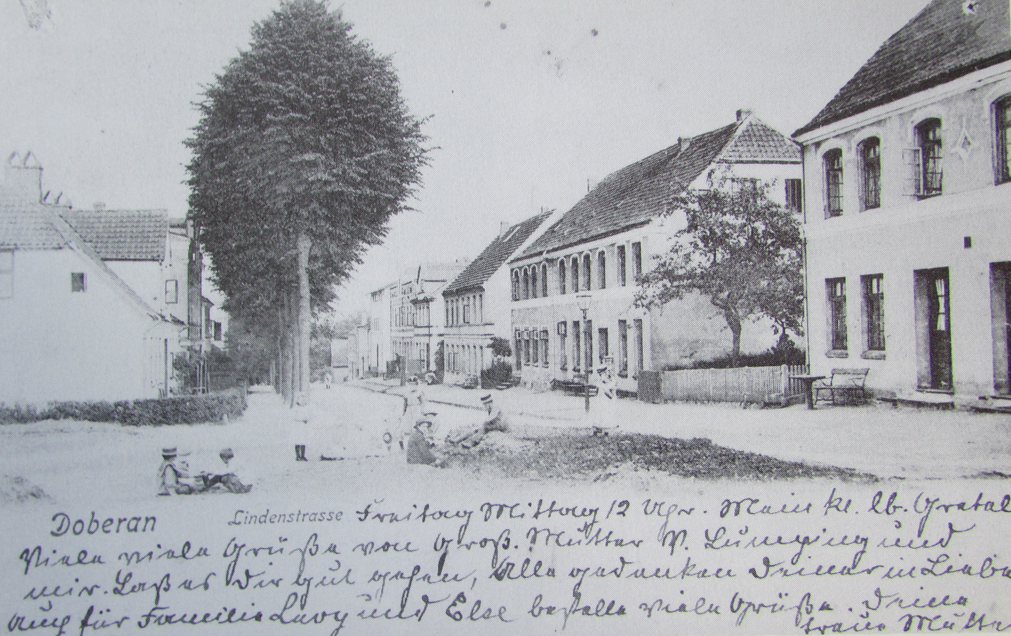 Doberan Lindenstrasse Freitag Mittag 12 Uhr. Mein kl. lb.
Viele viele Grüße von Groß. Mutter und
mir. Laß es Dir gut gehen, Alle gedenken Deiner in Liebe
auch für Familie Levy und Else bestelle viele Grüße. Deine
treue Mutter